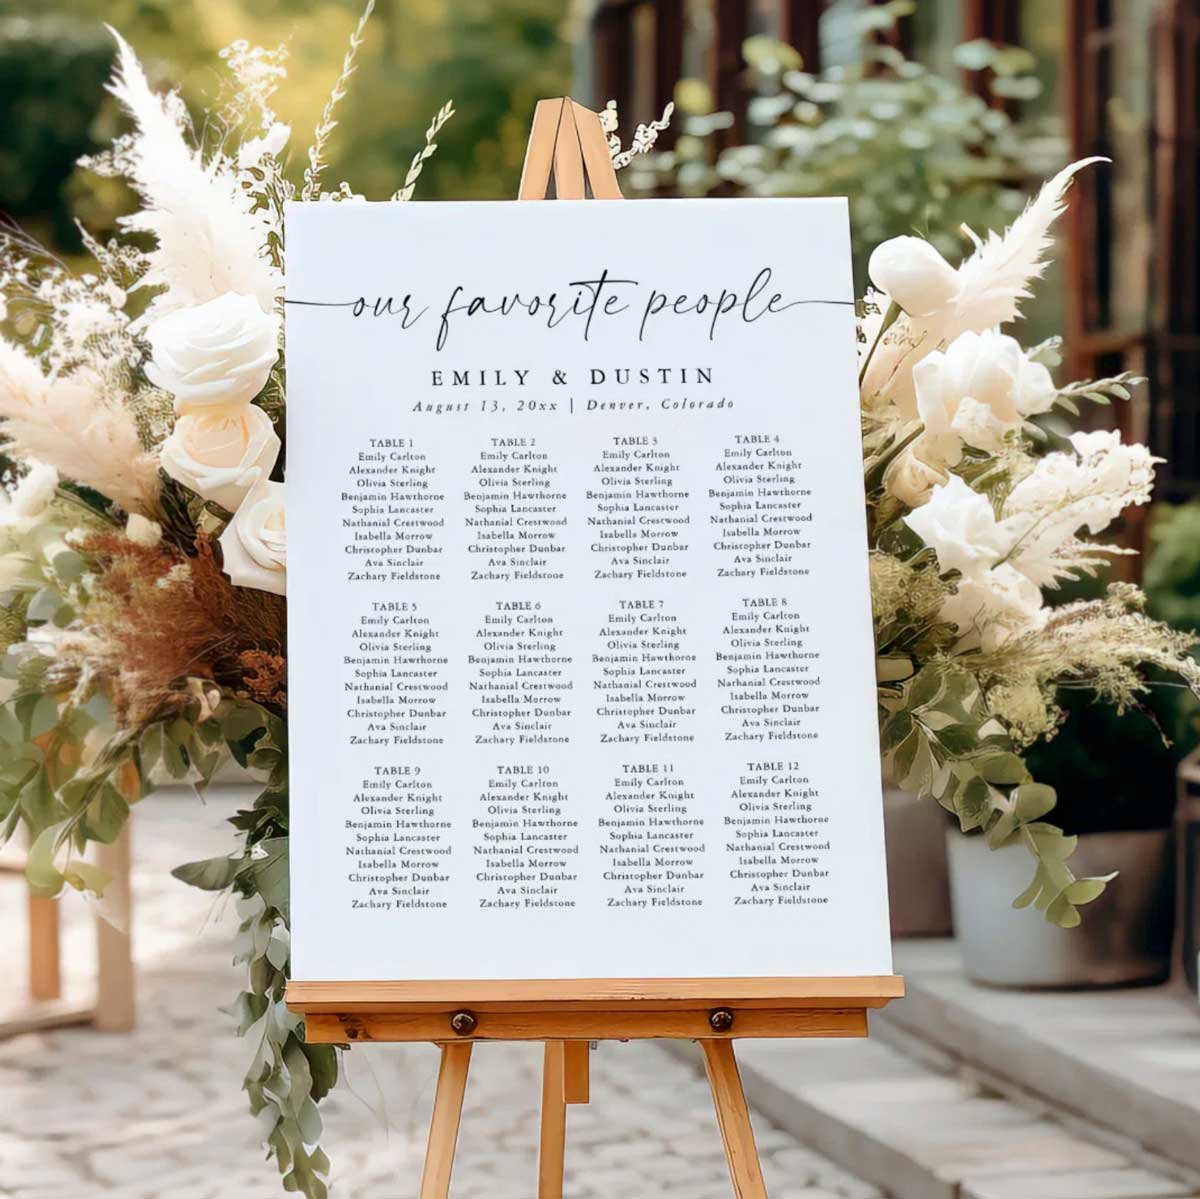 our favorite people
EMILY & DUSTIN
August 13, 20xx | Denver, Colorado
TABLE 1
Emily Carlton
Alexander Knight
Olivia Sterling
Benjamin Hawthorne
Sophia Lancaster
Nathanial Crestwood
Isabella Morrow
Christopher Dunbar
Ava Sinclair
Zachary Fieldstone
TABLE 2
Emily Carlton
Alexander Knight
Olivia Sterling
Benjamin Hawthorne
Sophia Lancaster
Nathanial Crestwood
Isabella Morrow
Christopher Dunbar
Ava Sinclair
Zachary Fieldstone
TABLE 3
Emily Carlton
Alexander Knight
Olivia Sterling
Benjamin Hawthorne
Sophia Lancaster
Nathanial Crestwood
Isabella Morrow
Christopher Dunbar
Ava Sinclair
Zachary Fieldstone
TABLE 4
Emily Carlton
Alexander Knight
Olivia Sterling
Benjamin Hawthorne
Sophia Lancaster
Nathanial Crestwood
Isabella Morrow
Christopher Dunbar
Ava Sinclair
Zachary Fieldstone
TABLE 5
Emily Carlton
Alexander Knight
Olivia Sterling
Benjamin Hawthorne
Sophia Lancaster
Nathanial Crestwood
Isabella Morrow
Christopher Dunbar
Ava Sinclair
Zachary Fieldstone
TABLE 6
Emily Carlton
Alexander Knight
Olivia Sterling
Benjamin Hawthorne
Sophia Lancaster
Nathanial Crestwood
Isabella Morrow
Christopher Dunbar
Ava Sinclair
Zachary Fieldstone
TABLE 7
Emily Carlton
Alexander Knight
Olivia Sterling
Benjamin Hawthorne
Sophia Lancaster
Nathanial Crestwood
Isabella Morrow
Christopher Dunbar
Ava Sinclair
Zachary Fieldstone
TABLE 8
Emily Carlton
Alexander Knight
Olivia Sterling
Benjamin Hawthorne
Sophia Lancaster
Nathanial Crestwood
Isabella Morrow
Christopher Dunbar
Ava Sinclair
Zachary Fieldstone
TABLE 9
Emily Carlton
Alexander Knight
Olivia Sterling
Benjamin Hawthorne
Sophia Lancaster
Nathanial Crestwood
Isabella Morrow
Christopher Dunbar
Ava Sinclair
Zachary Fieldstone
TABLE 10
Emily Carlton
Alexander Knight
Olivia Sterling
Benjamin Hawthorne
Sophia Lancaster
Nathanial Crestwood
Isabella Morrow
Christopher Dunbar
Ava Sinclair
Zachary Fieldstone
TABLE 11
Emily Carlton
Alexander Knight
Olivia Sterling
Benjamin Hawthorne
Sophia Lancaster
Nathanial Crestwood
Isabella Morrow
Christopher Dunbar
Ava Sinclair
Zachary Fieldstone
TABLE 12
Emily Carlton
Alexander Knight
Olivia Sterling
Benjamin Hawthorne
Sophia Lancaster
Nathanial Crestwood
Isabella Morrow
Christopher Dunbar
Ava Sinclair
Zachary Fieldstone